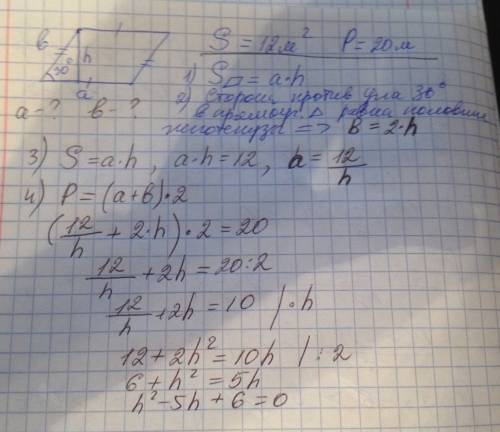 в h 30° а
S = 12м² P = 20м
а - ? в - ?
1) S▱ = a·h
2) Сторона против угла 30°
в прямоуг. △ равна половине
гипотенузы => B = 2·h
3) S = a·h, a·h = 12, a = 12/h
4) P = (a+b)·2
(12/h + 2·h)·2 = 20
12/h + 2h = 20:2
12/h + 2h = 10 /·h
12 + 2h² = 10h /:2
6 + h² = 5h
h² - 5h + 6 = 0